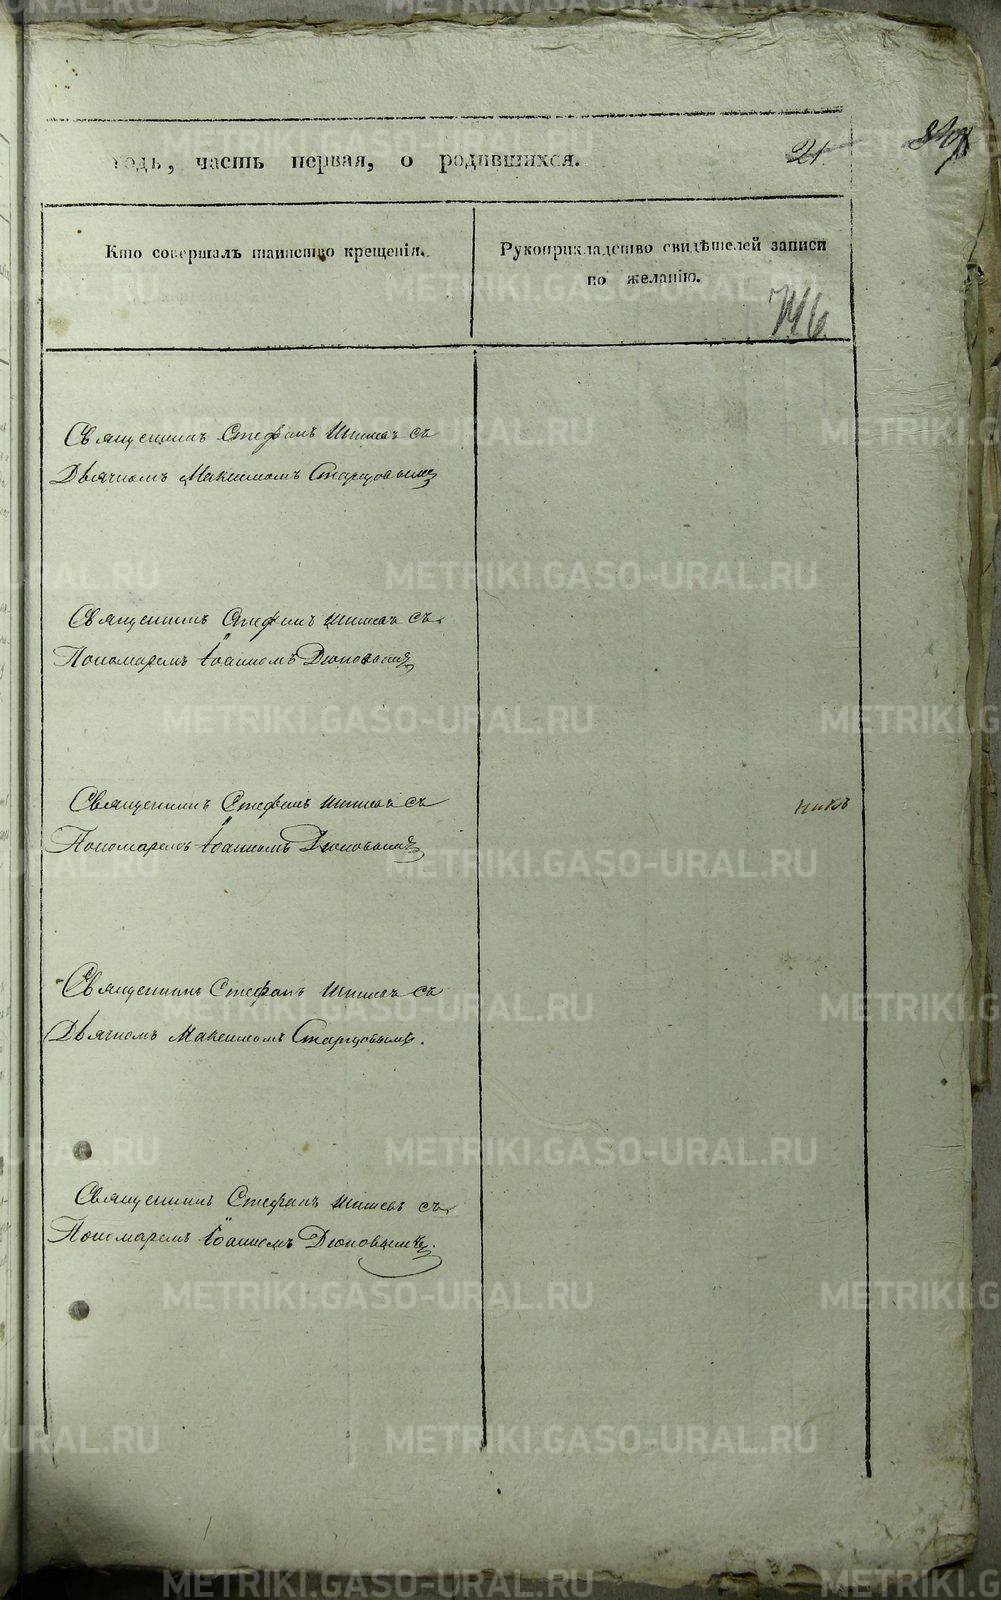 годъ, часть первая, о родившихся.
21
Кто совершалъ таинство крещенія.
Рукоприкладство свидѣтелей записи
по желанію.
746
Священникъ Стефанъ Шишевъ съ
Дьячкомъ Максимомъ Старцовымъ
Священникъ Стефанъ Шишевъ съ
Пономаремъ Іоанномъ Дюповымъ
Священникъ Стефанъ Шишевъ съ
Пономаремъ Іоанномъ Дюповымъ
никъ
Священникъ Стефанъ Шишевъ съ
Дьячкомъ Максимомъ Старцовымъ.
Священникъ Стефанъ Шишевъ съ
Пономаремъ Іоанномъ Дюповымъ.
METRIKI.GASO-URAL.RU